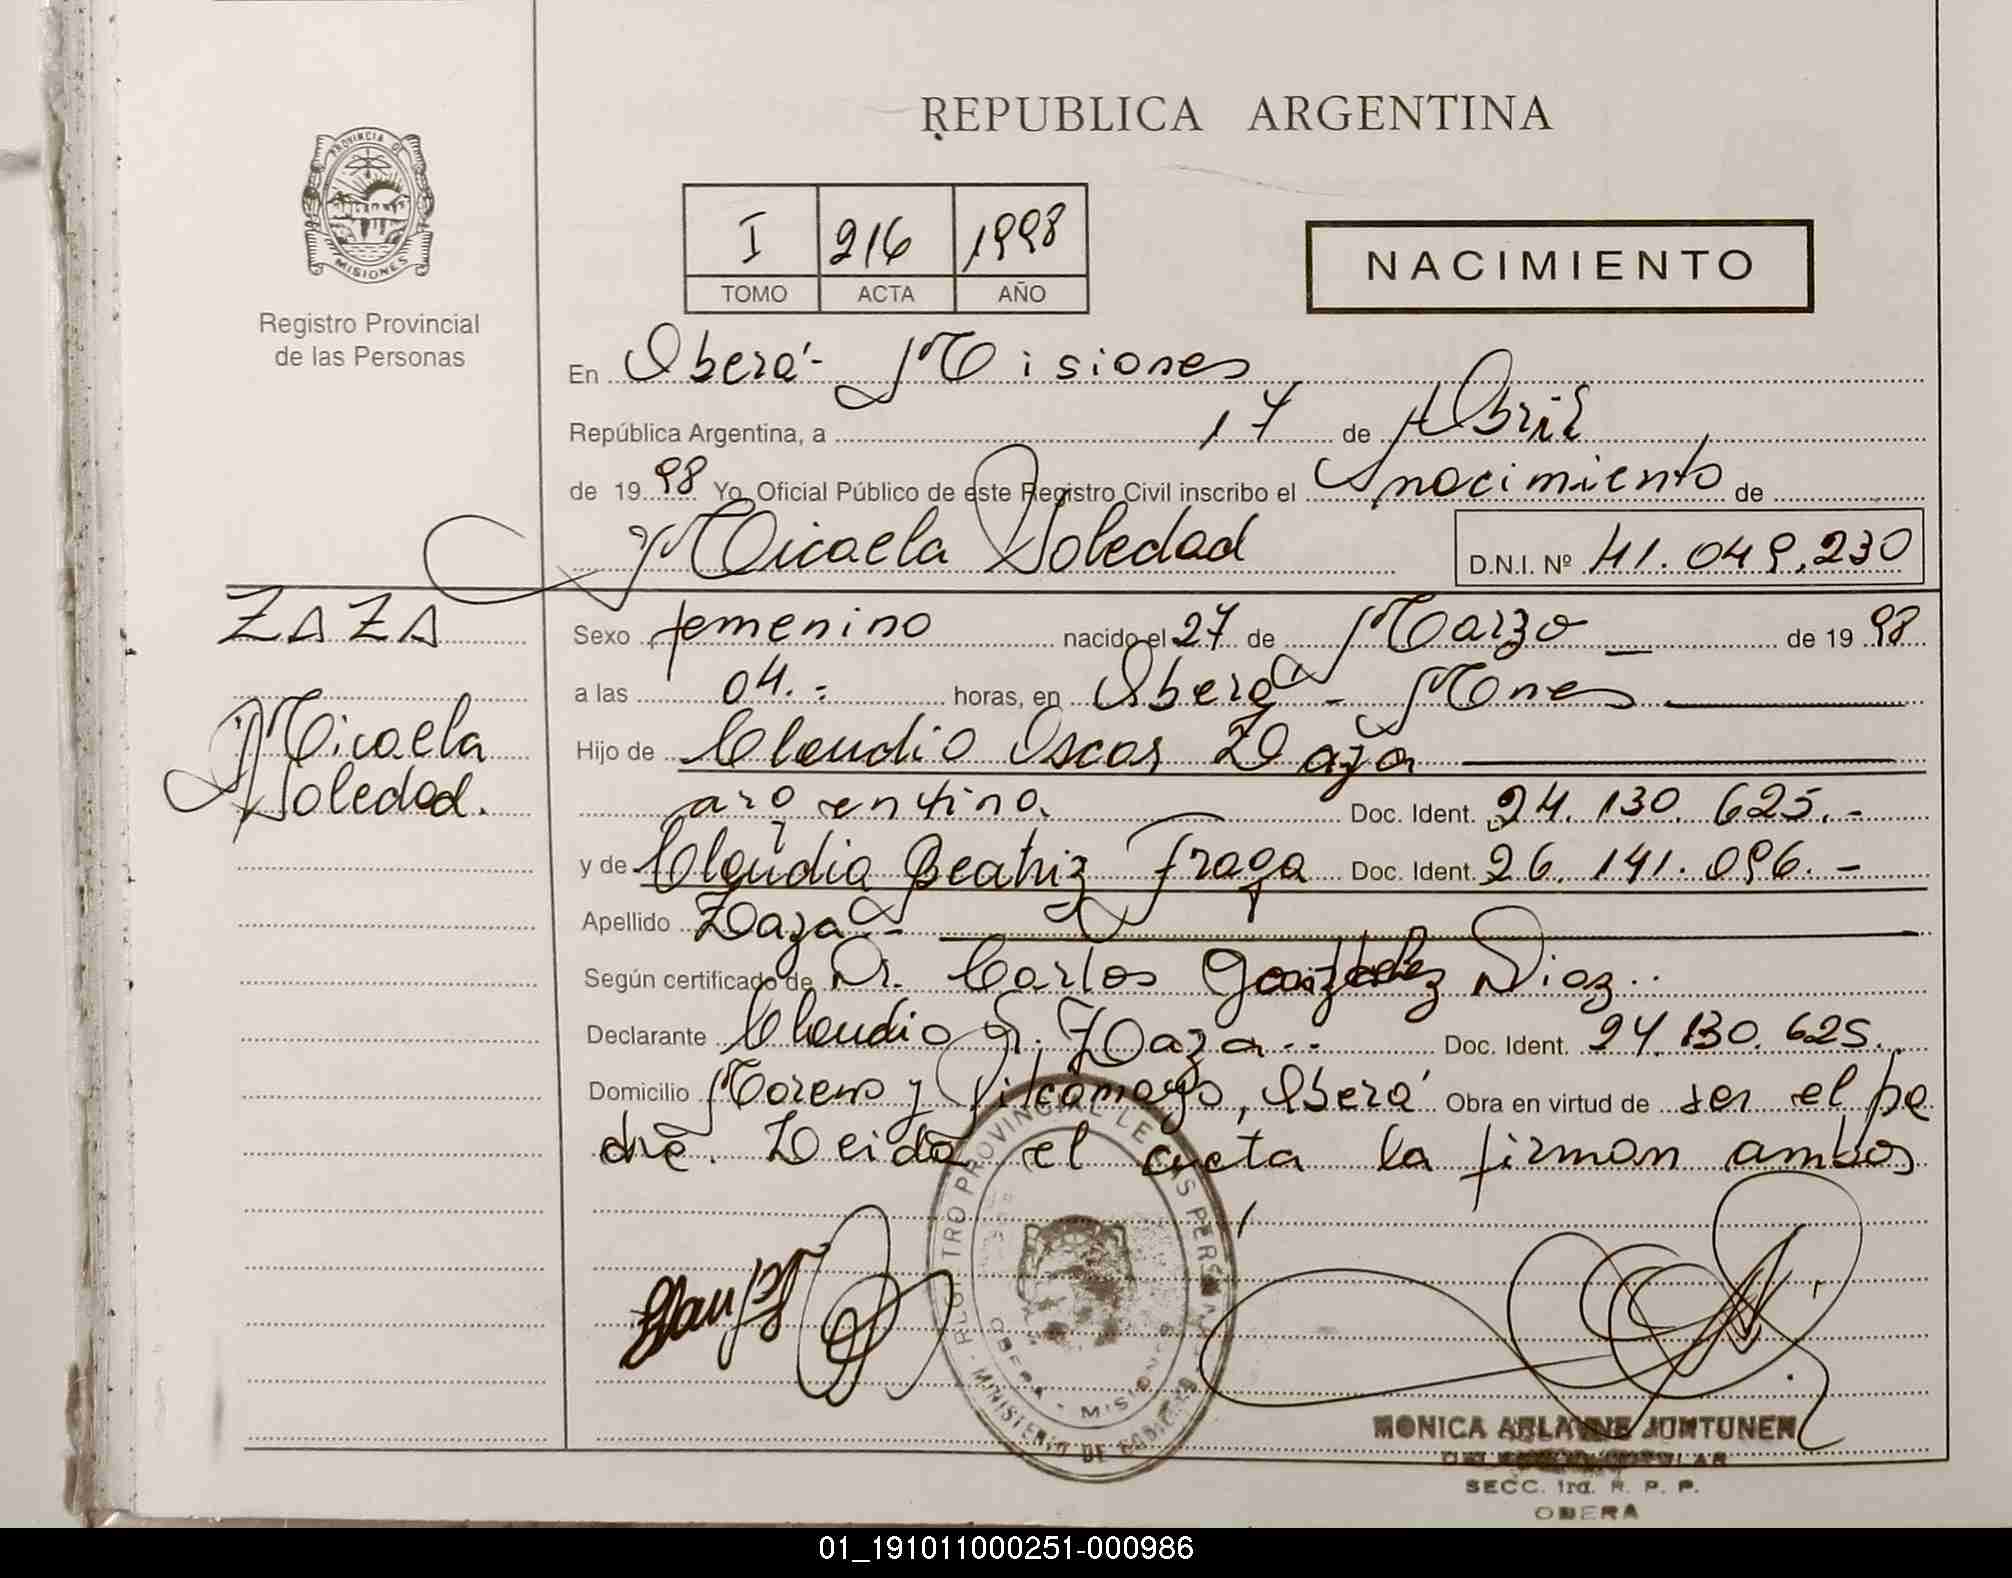 REPUBLICA ARGENTINA
PROVINCIA DE
MISIONES
Registro Provincial
de las Personas
I 216 1998
TOMO ACTA AÑO
NACIMIENTO
En Oberá - Misiones
República Argentina, a 17 de Abril
de 1998 Yo, Oficial Público de este Registro Civil inscribo el nacimiento de
Micaela Soledad D.N.I. Nº 41.049.230
ZAZA
Micaela
Soledad.
Sexo femenino nacido el 27 de Marzo de 1998
a las 04.- horas, en Oberá - Mones
Hijo de Claudio Oscar Zaza
argentino. Doc. Ident. 24.130.625.-
y de Claudia Beatriz Fraga Doc. Ident. 26.141.096.-
Apellido Zaza.-
Según certificado de Dr. Carlos González Diaz..
Declarante Claudio O. Zaza.- Doc. Ident. 24.130.625.
Domicilio Moreno y Pilcomayo, Oberá Obra en virtud de ser el pa
dre. Leida el acta la firman ambos
REGISTRO PROVINCIAL DE LAS PERSONAS
OBERA - MISIONES
MINISTERIO DE GOBIERNO
MONICA ARLAINE JUNTUNEN
SECC. 1ra. R. P. P.
OBERA
01_191011000251-000986